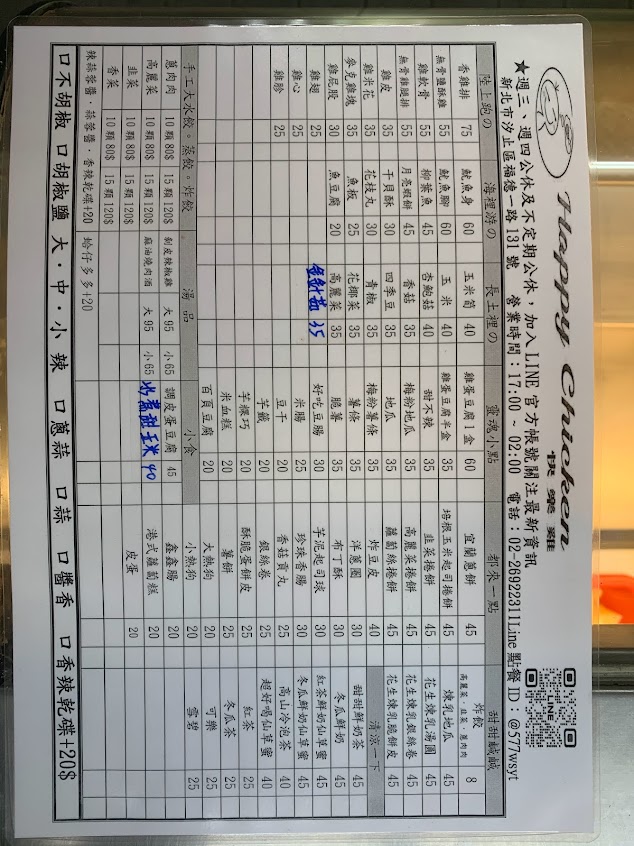 Happy Chicken
快樂雞
★週三、週四公休及不定期公休，加入LINE 官方帳號關注最新資訊
新北市汐止區福德一路 131 號 營業時間：17:00 ~ 02:00 電話：02-26922311Line 點餐 ID：@577wsyt
LINE
陸上跑の 海裡游の 長土裡の 靈魂小點 都來一點 甜甜鹹鹹
香雞排 75 魷魚身 60 玉米筍 40 雞蛋豆腐1盒 60 宜蘭蔥餅 45 炸餃 高麗菜.韭菜.蔥肉肉 8
無骨鹽酥雞 55 魷魚腳 60 玉米 40 雞蛋豆腐半盒 35 培根玉米起司捲餅 45 煉乳地瓜 45
雞軟骨 55 柳葉魚 45 杏鮑菇 40 甜不辣 35 韭菜捲餅 45 花生煉乳湯圓 45
無骨雞腿排 55 月亮蝦餅 45 香菇 35 梅粉地瓜 35 高麗菜捲餅 45 花生煉乳銀絲卷 45
雞皮 35 干貝酥 30 四季豆 35 地瓜 35 蘿蔔絲捲餅 45 花生煉乳脆餅皮 45
雞米花 35 花枝丸 30 青椒 35 梅粉薯條 35 炸豆皮 40 清涼一下
麥克雞塊 35 魚板 25 花椰菜 35 薯條 35 洋蔥圈 30 甜甜鮮奶茶 45
雞屁股 30 魚豆腐 20 高麗菜 35 脆薯 35 布丁酥 30 冬瓜鮮奶 45
雞翅 25 金針菇 35 好吃豆腸 30 芋泥起司球 30 紅茶鮮奶仙草蜜 45
雞心 25 米腸 25 珍珠香腸 30 冬瓜鮮奶仙草蜜 45
雞胗 25 豆干 20 香菇貢丸 25 高山冷泡茶 40
芋籤 20 銀絲卷 25 超好喝仙草蜜 40
芋粿巧 20 酥脆蛋餅皮 25 紅茶 25
米血糕 20 薯餅 25 冬瓜茶 25
百頁豆腐 20 大熱狗 20 可樂 25
手工大水餃。蒸餃。炸餃 湯品 小食 小熱狗 20 雪碧 25
蔥肉肉 10顆80$ 15顆120$ 剝皮辣椒雞 大95 小65 調皮蛋豆腐 45 鑫鑫腸 20
高麗菜 10顆80$ 15顆120$ 麻油燒肉酒 大95 小65 甜玉米 40 港式蘿蔔糕 20
韭菜 10顆80$ 15顆120$ 皮蛋 20
香菜 10顆80$ 15顆120$
辣蒜蓉醬.蒜蓉醬.香辣乾碟+20 蛤仔多多+20
口不胡椒 口胡椒鹽 大．中．小辣 口蔥蒜 口蒜 口醬香 口香辣乾碟+20$